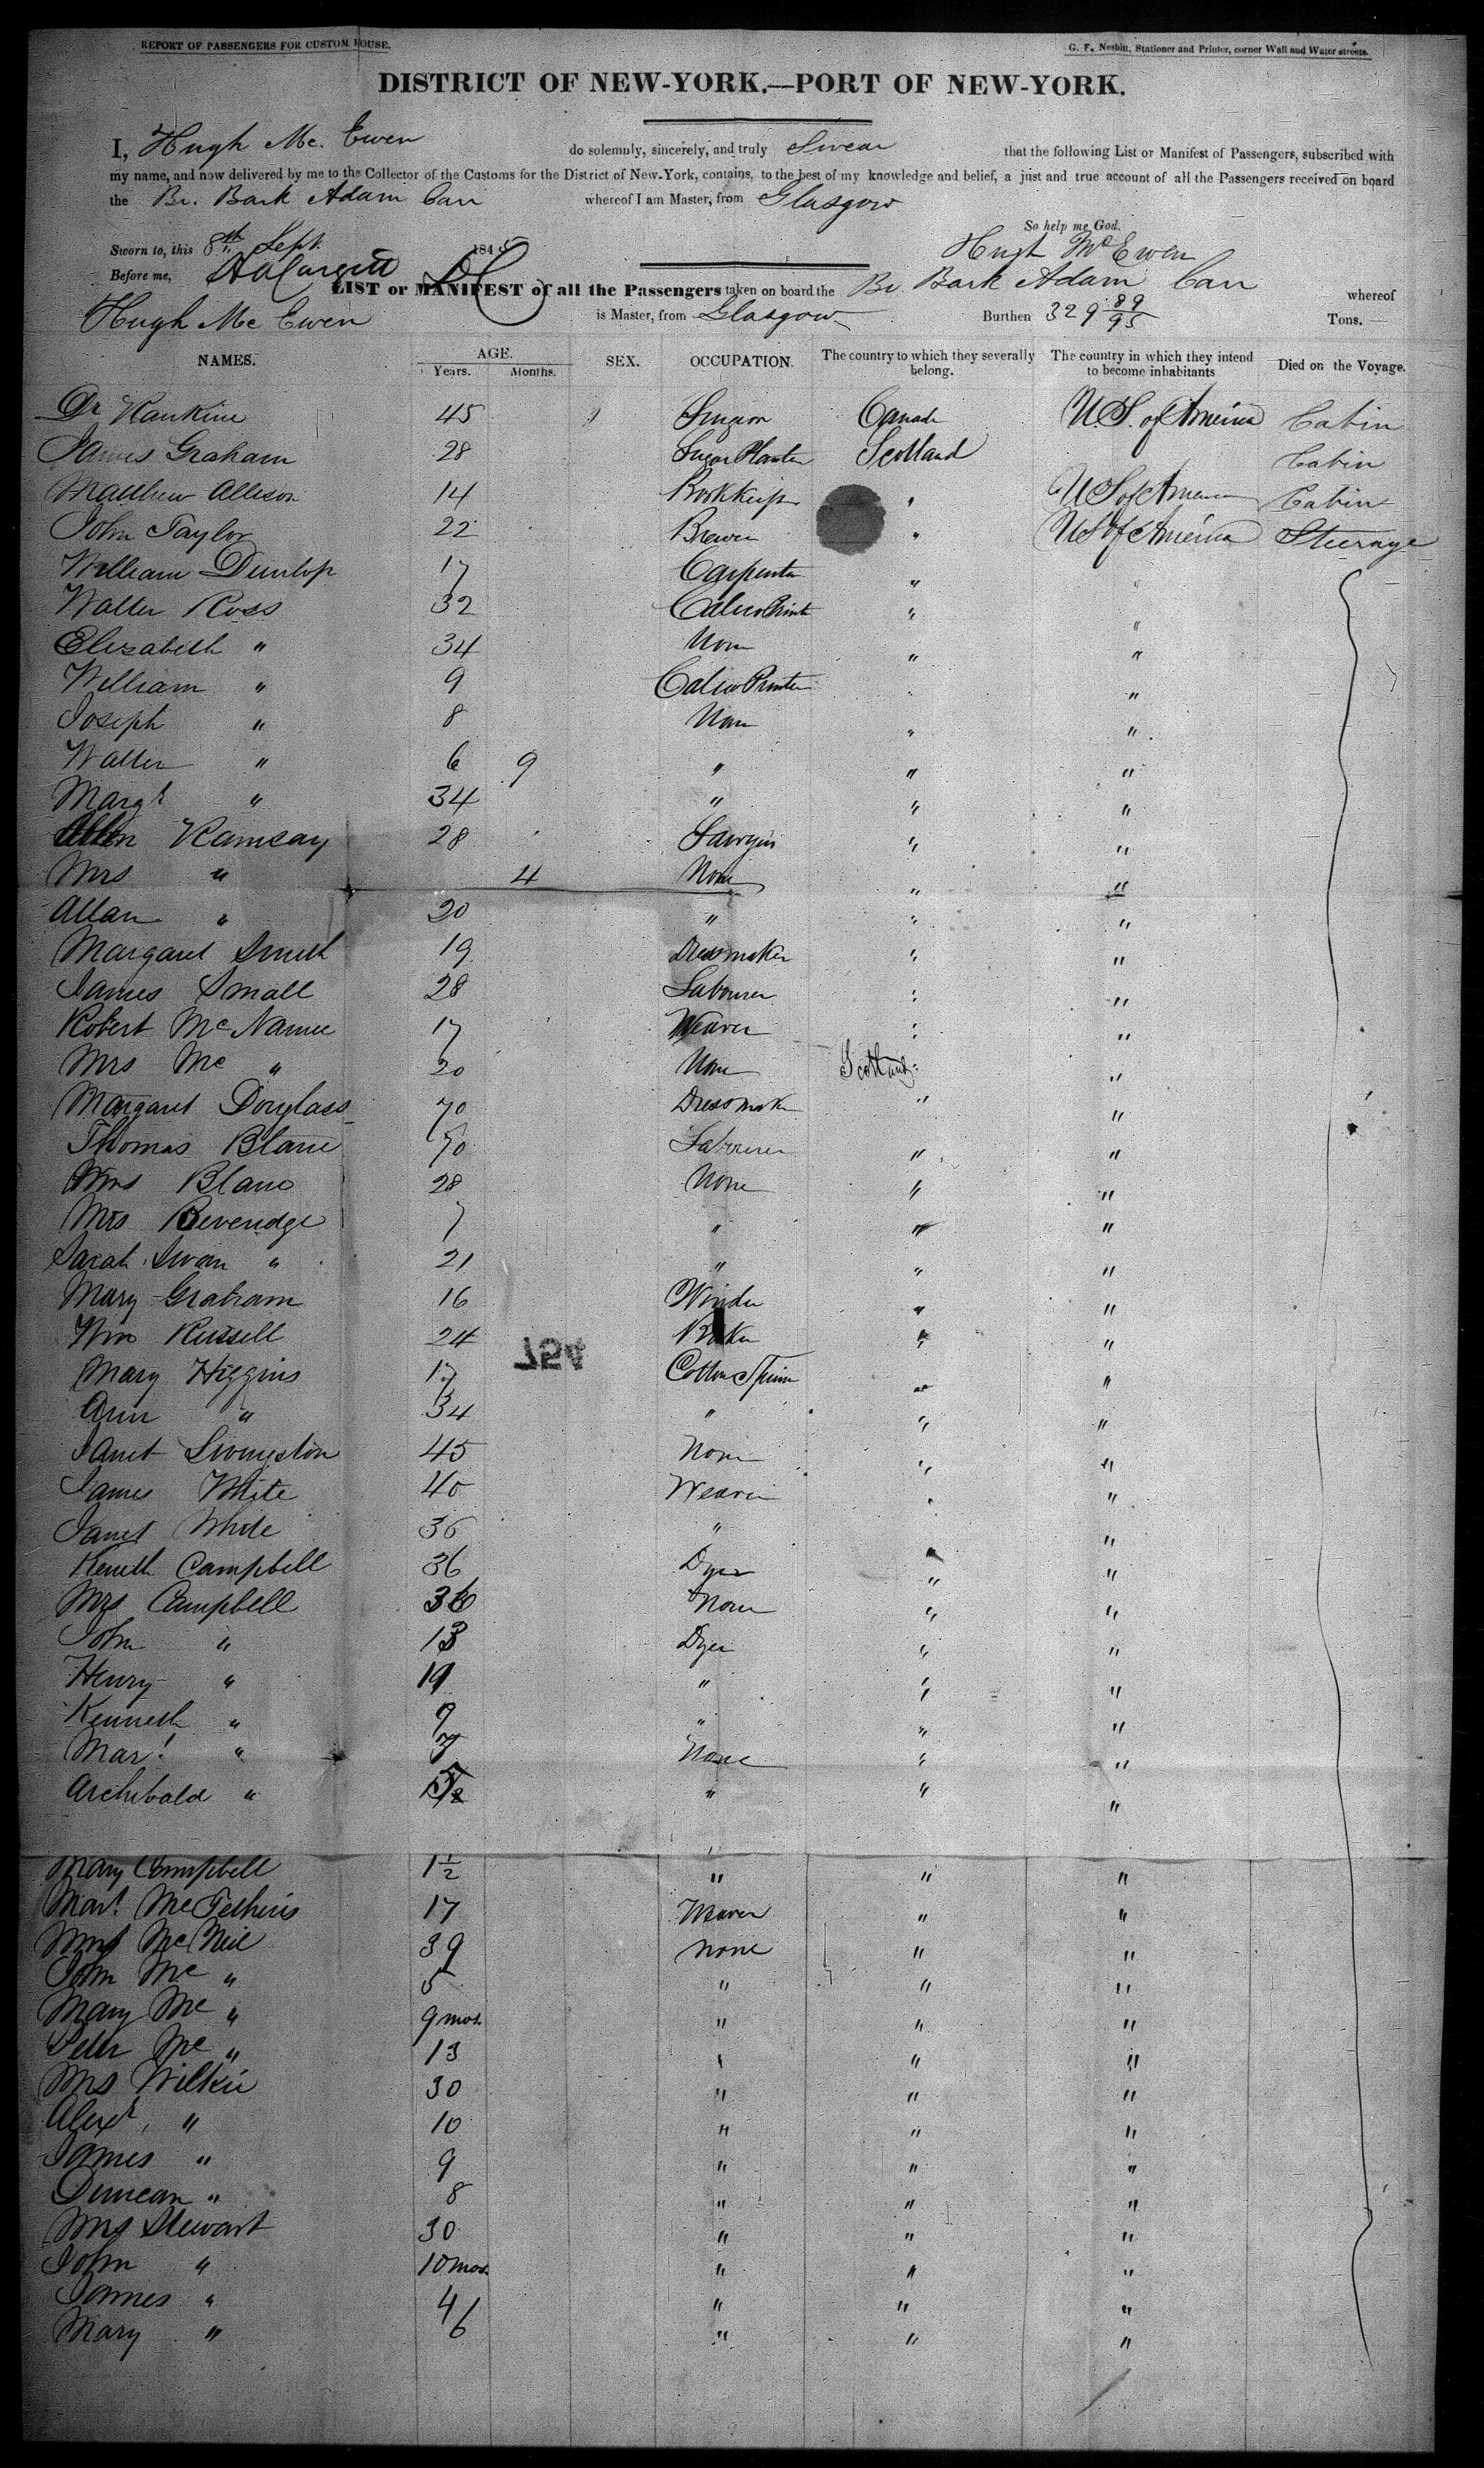 REPORT OF PASSENGERS FOR CUSTOM HOUSE.
G. F. Nesbitt, Stationer and Printer, corner Wall and Water streets.
DISTRICT OF NEW-YORK.—PORT OF NEW-YORK.
I, Hugh Mc. Ewen do solemnly, sincerely, and truly Swear that the following List or Manifest of Passengers, subscribed with
my name, and now delivered by me to the Collector of the Customs for the District of New-York, contains, to the best of my knowledge and belief, a just and true account of all the Passengers received on board
the Br. Bark Adam Carr whereof I am Master, from Glasgow
So help me God.
Sworn to, this 8th Sept. 184
Hugh McEwen
Before me,
LIST or MANIFEST of all the Passengers taken on board the Br. Bark Adam Carr whereof
Hugh Mc Ewen is Master, from Glasgow Burthen 329 89/95 Tons.
NAMES. AGE. Years. Months. SEX. OCCUPATION. The country to which they severally belong. The country in which they intend to become inhabitants Died on the Voyage.
Dr Rankine 45 Surgeon Canada U.S. of America Cabin
James Graham 28 Sugar Planter Scotland Cabin
Matthew Allison 14 Bookkeeper " US of America Cabin
John Taylor 22 Brewer " US of America Steerage
William Dunlop 17 Carpenter " "
Walter Ross 32 Calico Print " "
Elizabeth " 34 None " "
William " 9 Calico Printer "
Joseph " 8 None " "
Walter " 6 9 " " "
Margt " 34 " " "
Ramsay 28 Sawyer " "
Mrs " 4 None " "
Allan " 20 " " "
Margaret Smith 19 Dressmaker " "
James Small 28 Labourer " "
Robert McNamee 17 Weaver " "
Mrs Mc " 20 None Scotland "
Margaret Douglass 70 Dressmaker " "
Thomas Blane 70 Labourer " "
Mrs Blane 28 None " "
Mrs Beveridge 7 " " "
Sarah Swan " 21 " " "
Mary Graham 16 Winder " "
Wm Russell 24 Baker " "
Mary Higgins 17 Cotton Spinn " "
Ann " 34 " " "
Janet Livingston 45 None " "
James White 40 Weaver " "
Janet White 36 " "
754
Keneth Campbell 36 Dyer " "
Mrs Campbell 36 None " "
John " 13 Dyer " "
Henry " 19 " " "
Kenneth " 9 " " "
Mart " 7 None " "
Archibald " " " "
Mary Campbell 1½ " " "
Mart Mc 17 Weaver " "
Mrs McNeil 39 none " "
John Mc " 5 " " "
Mary Mc " 9 mos. " " "
Peter Mc " 13 " " "
Mrs Wilkie 30 " " "
Alexr " 10 " " "
James " 9 " " "
Duncan " 8 " " "
Mrs Stewart 30 " " "
John " 10 mos. " " "
James " 4 " " "
Mary " 6 " " "